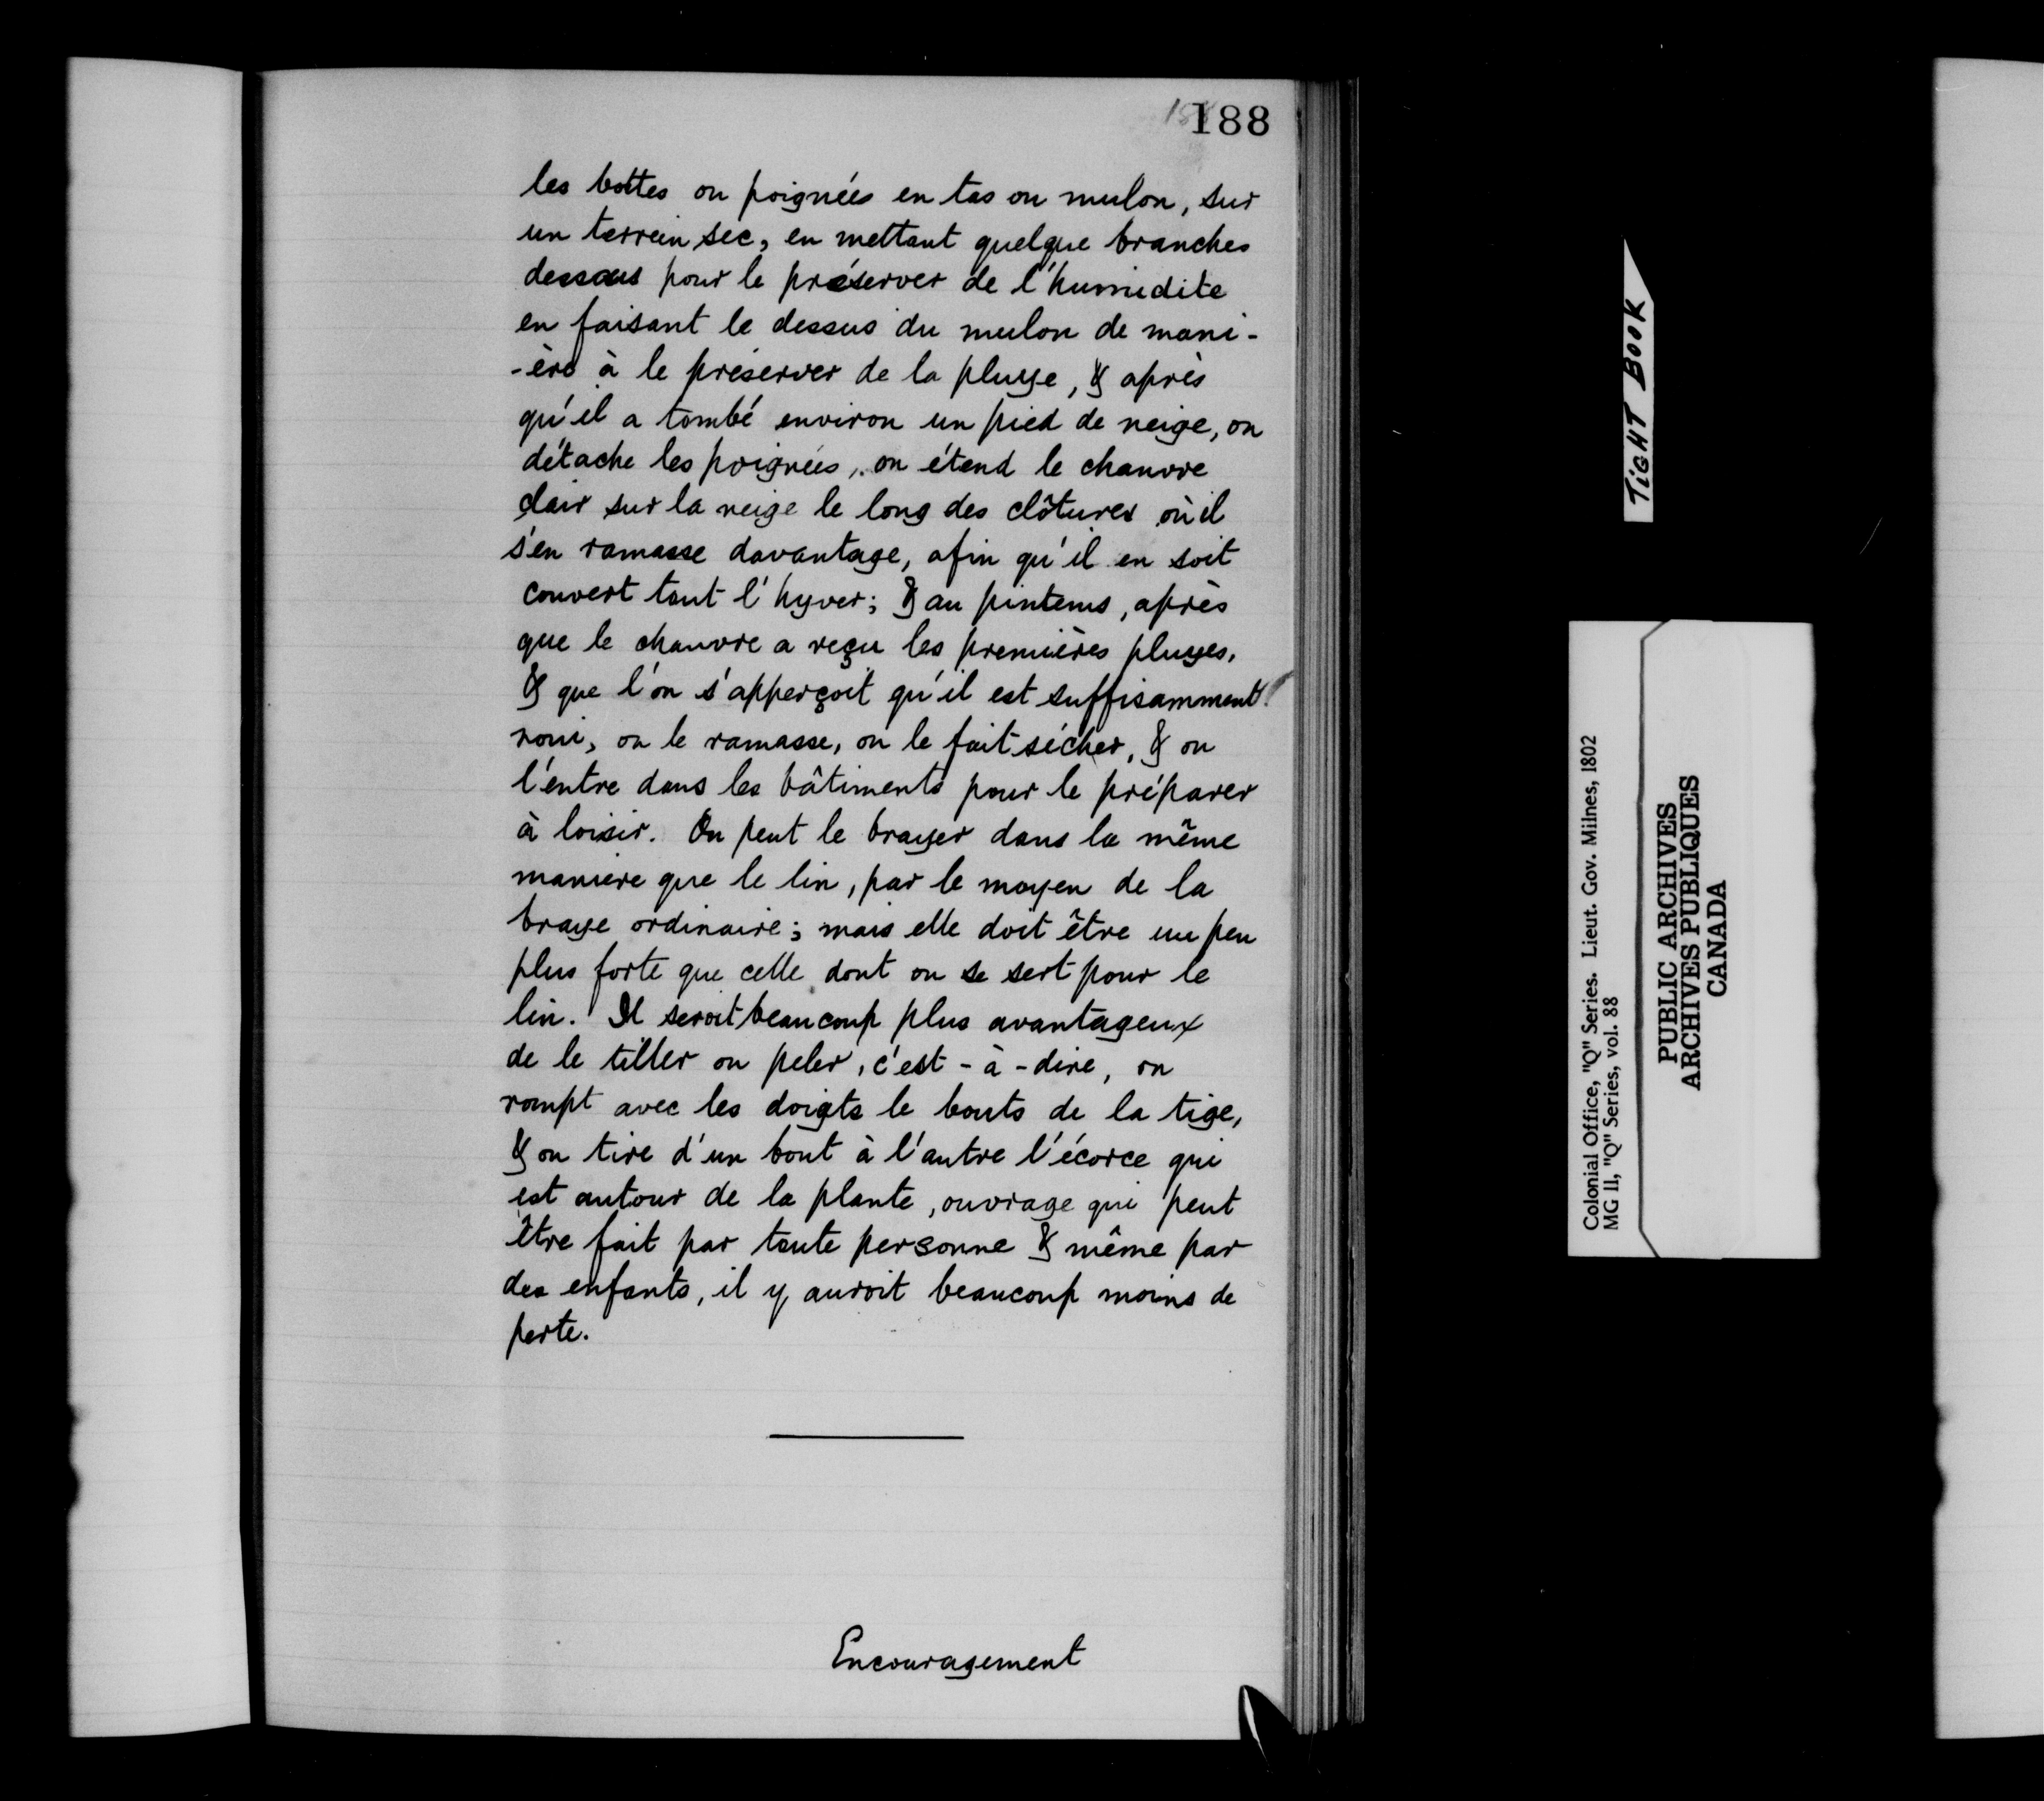 188
les bottes ou poignées en tas ou mulon, sur
un terrein sec, en mettant quelque branches
dessous pour le préserver de l'humidite
en faisant le dessus du mulon de mani-
-ère à le préserver de la pluye, & après
qu'il a tombé environ un pied de neige, on
détache les poignées, on étend le chanvre
clair sur la neige le long des clôtures où il
s'en ramasse davantage, afin qu'il en soit
couvert tout l'hyver; & au pintems, après
que le chanvre a reçu les premières pluyes,
& que l'on s'apperçoit qu'il est suffisamment
roui, on le ramasse, on le fait sécher, & on
l'entre dans les bâtiments pour le préparer
à loisir. On peut le brayer dans la même
maniere que le lin, par le moyen de la
braye ordinaire; mais elle doit être un peu
plus forte que celle dont on se sert pour le
lin. Il seroit beaucoup plus avantageux
de le tiller ou peler, c'est-à-dire, on
rompt avec les doigts le bouts de la tige,
& on tire d'un bout à l'autre l'écorce qui
est autour de la plante, ouvrage qui peut
être fait par toute personne & même par
des enfants, il y auroit beaucoup moins de
perte.
Encouragement
TIGHT BOOK
Colonial Office, "Q" Series. Lieut. Gov. Milnes, 1802
MG 11, "Q" Series, vol. 88
PUBLIC ARCHIVES
ARCHIVES PUBLIQUES
CANADA